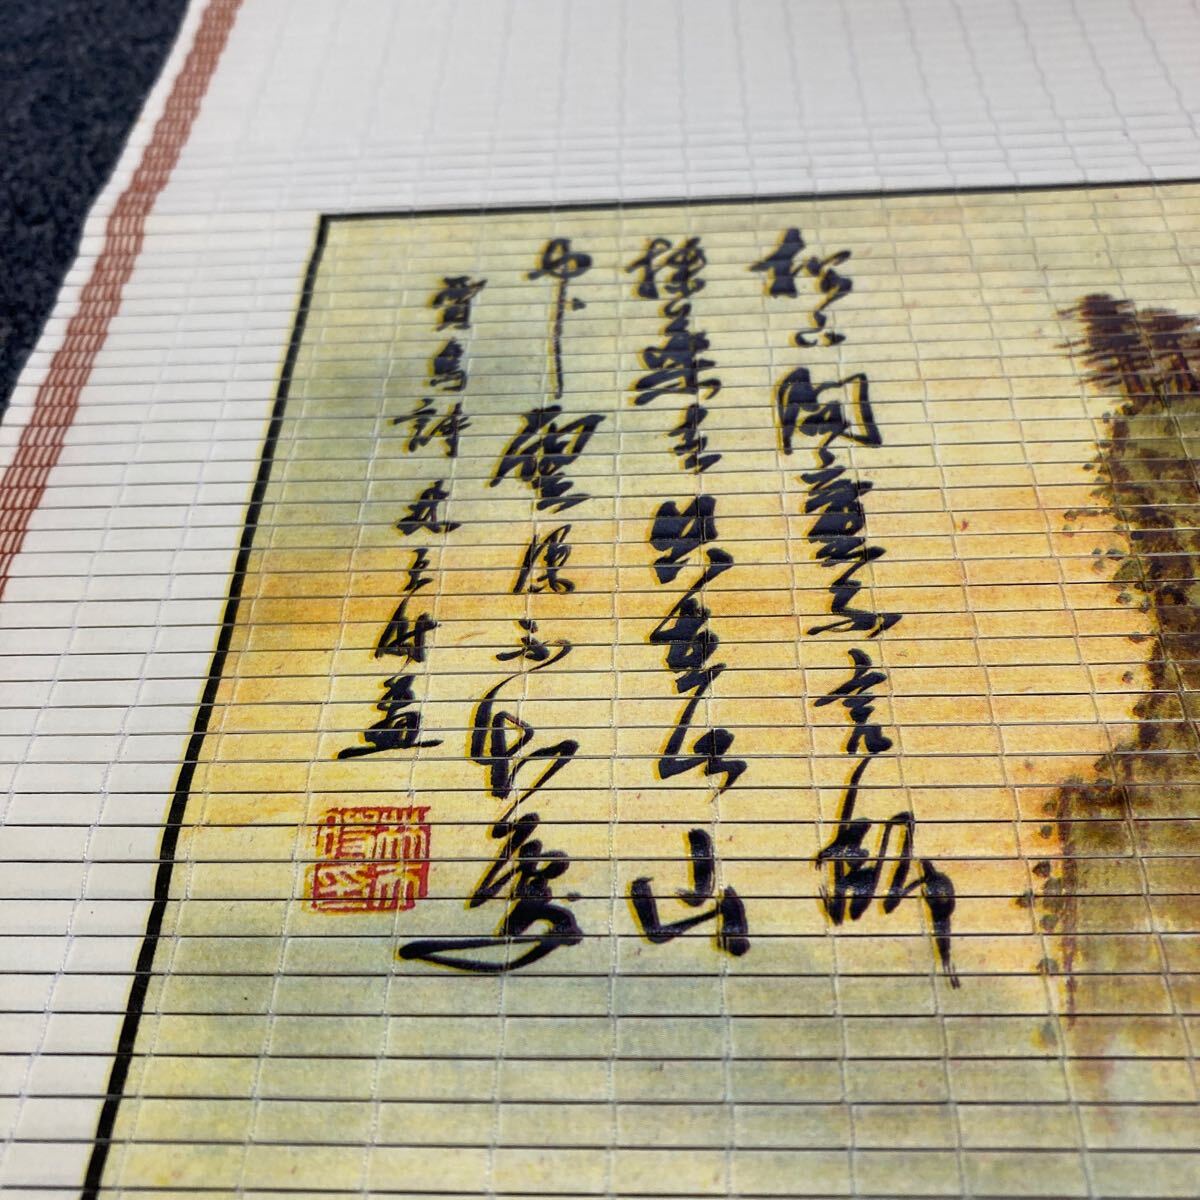 松下問童子言師
採藥去只在此山
中雲深不知處
賈島詩